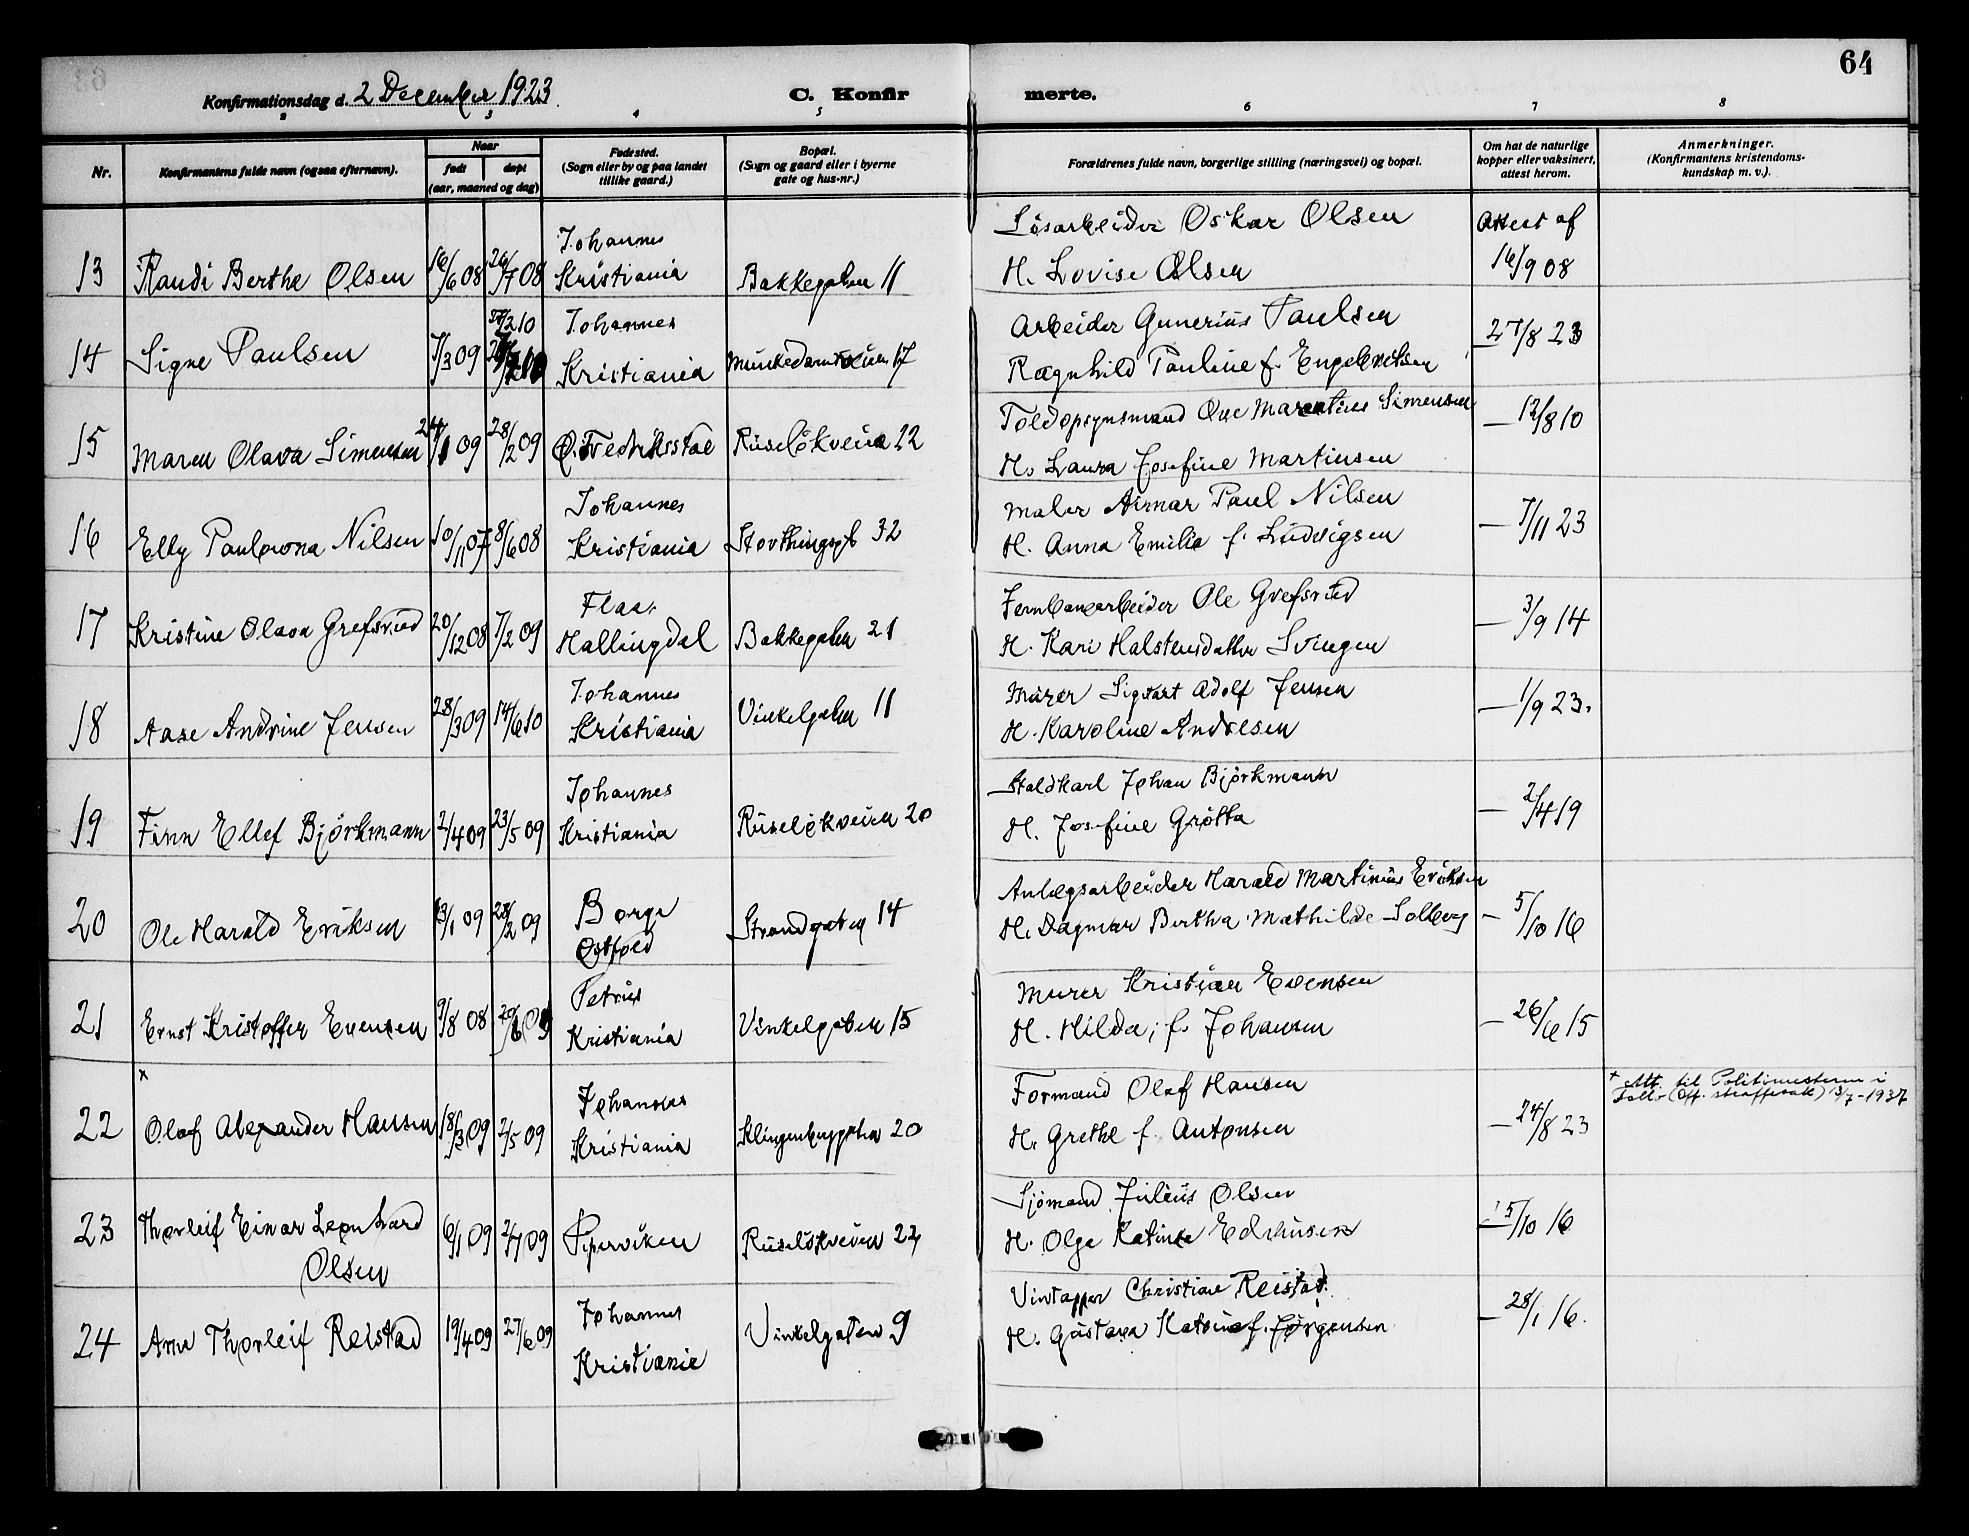 64
Konfirmationsdag d. 2 December 1923
C. Konfirmerte.
2 3 4 5 6 7 8
Nr.
Konfirmantens fulde navn (ogsaa efternavn).
Naar
født døpt
(aar, maaned og dag)
Fødested.
(Sogn eller by og paa landet
tillike gaard.)
Bopæl.
(Sogn og gaard eller i byerne
gate og hus-nr.)
Forældrenes fulde navn, borgerlige stilling (næringsvei) og bopæl.
Om hat de naturlige
kopper eller vaksinert,
attest herom.
Anmerkninger.
(Konfirmantens kristendoms-
kundskap m. v.).
Johannes
Løsarbeider Oskar Olsen
Attest af
13 Randi Berthe Olsen 16/6 08 26/7 08 Kristiania Bakkegaten 11
H. Lovise Olsen
16/9 08
27/2 10
Johannes
Arbeider Gunerius Paulsen
14 Signe Paulsen 7/3 09 Kristiania Munkedamsveien 17
Ragnhild Pauline f. Engebretsen
27/8 23
15 Maren Olava Simensen 24/1 09 28/2 09 Ø. Fredriksstad Ruseløkveien 22
Toldopsynsmand Ove Marentius Simensen
H. Laura Josefine Martinsen
— 12/8 10
Johannes
16 Elly Paulowna Nilsen 10/11 07 8/6 08 Kristiania Storthingsgt 32
Maler Aimar Paul Nilsen
H. Anna Emilie f. Ludvigsen
— 7/11 23
Flaa,
17 Kristine Olava Grefsrud 20/12 08 7/2 09 Hallingdal Bakkegaten 21
Jernbanearbeider Ole Grefsrud
H. Kari Halstensdatter Svingen
— 3/9 14
Johannes
18 Aase Andrine Jensen 28/3 09 14/6 10 Kristiania Vinkelgaten 11
Murer Sigvart Adolf Jensen
H. Karoline Andresen
— 1/9 23.
Johannes
19 Finn Ellef Bjørkmann 2/4 09 23/5 09 Kristiania Ruseløkveien 20
Staldkarl Johan Bjørkmann
H. Josefine Grøtta
— 2/4 19
Borge
20 Ole Harald Eriksen 13/1 09 28/2 09 Østfold Strandgaten 14
Anlægsarbeider Harald Martinius Eriksen
H. Dagmar Bertha Mathilde Solberg
— 5/10 16
Petrus
21 Ernst Kristoffer Evensen 9/8 08 20/6 09 Kristiania Vinkelgaten 15
Murer Kristian Evensen
H. Hilda, f. Johansen
— 26/6 15
x
Johannes
22 Olaf Alexander Hansen 18/3 09 2/5 09 Kristiania Klingenberggaten 20
Formand Olaf Hansen
H. Grethe f. Antonsen
— 24/8 23
x Att. til Politimesteren i
Follo (Off. straffesak) 13/7-1937
23 Thorleif Einar Leonhard
Olsen 6/1 09 2/7 09 Piperviken Ruseløkveien 22
Sjømand Julius Olsen
H. Olga Katinka Edvinsen
— 15/10 16
Johannes
24 Arne Thorleif Reistad 19/4 09 27/6 09 Kristiania Vinkelgaten 9
Vintapper Christian Reistad.
H. Gustava Katrine f. Jørgensen
— 28/1 16.